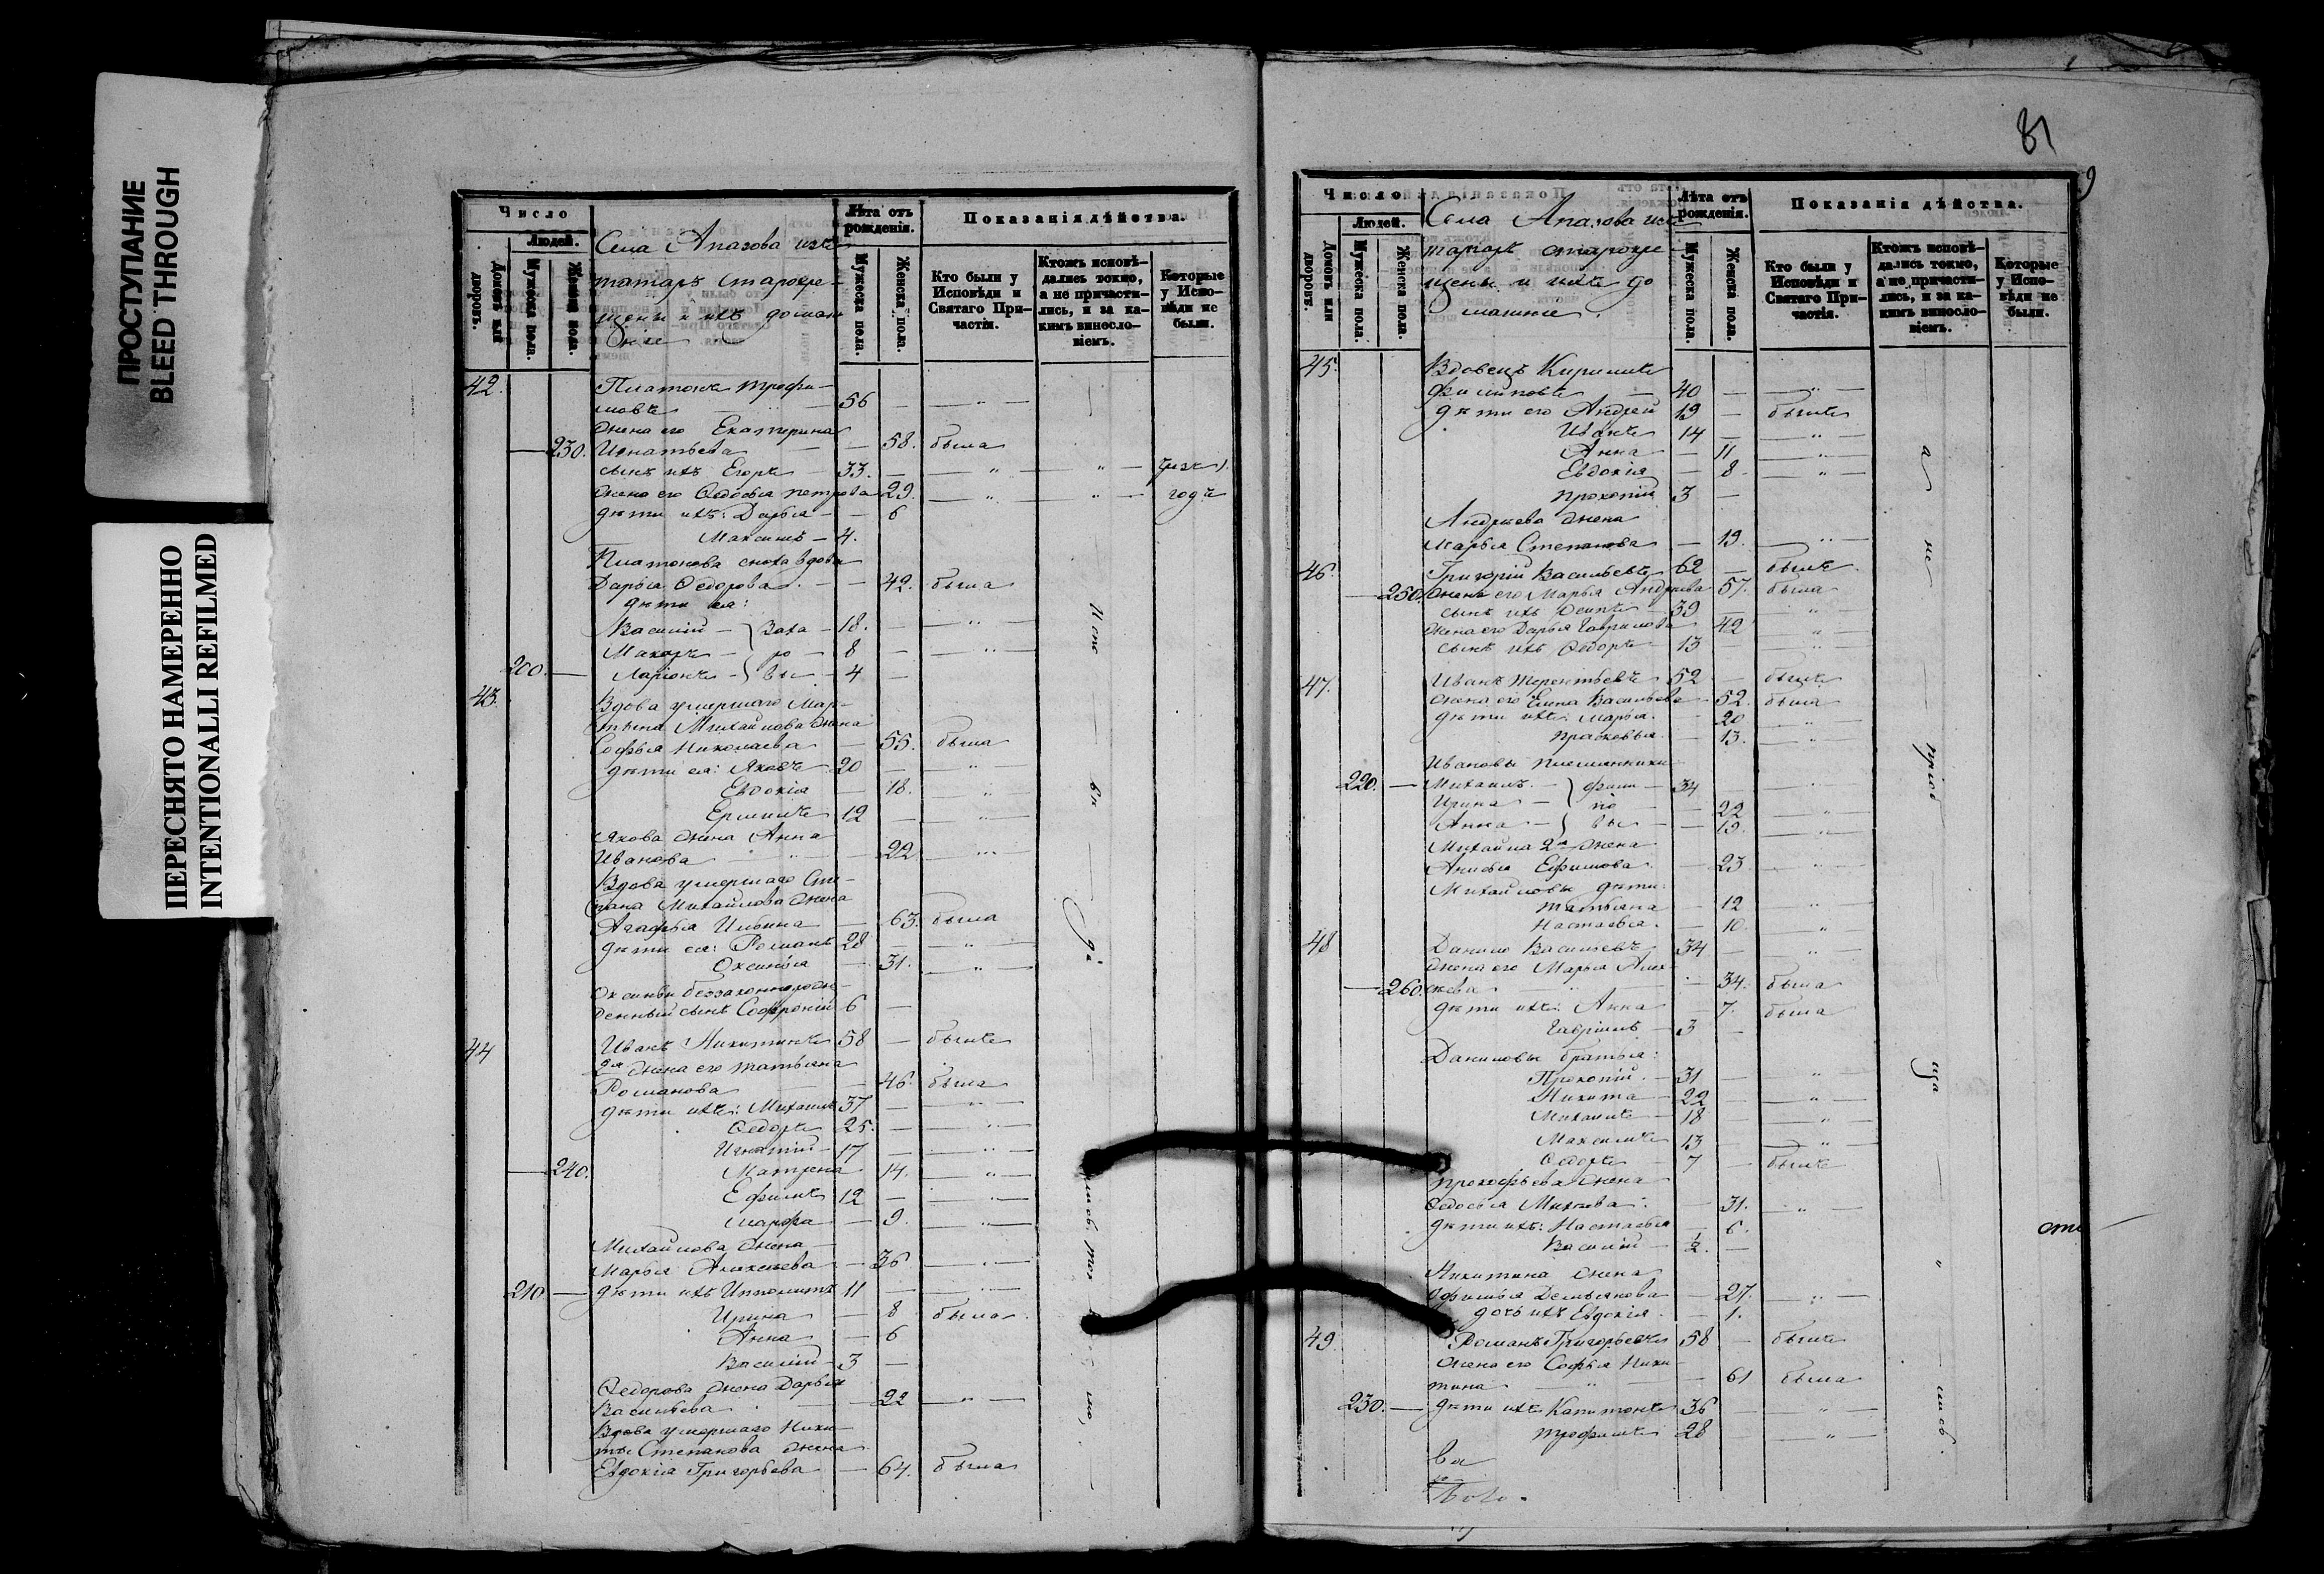 ПРОСТУПАНИЕ
BLEED THROUGH
ПЕРЕСНЯТО НАМЕРЕННО
INTENTIONALLI REFILMED
Число
Людей.
Домовъ или дворовъ.
Мужеска пола.
Женска пола.
Села Апазова изъ
татаръ старокре-
щены и ихъ домаш
Лѣта отъ рожденія.
Мужеска пола.
Женска пола.
Показанія дѣйства.
Кто были у Исповѣди и Святаго Причастія.
Ктожъ исповѣдались токмо, а не причастились, и за какимъ винословіемъ.
Которые у Исповѣди не были.
42. Платонъ Трофи-
мовъ 56 — „ —
жена его Екатерина
230. Игнатьева — 58. была
сынъ ихъ Егоръ 33. — „ — „
жена его Ѳедосья Петрова 29. — „ — „ годъ
дѣти ихъ: Дарья — 6
Максимъ — 4.
Платонова сноха вдова
Дарья Ѳедорова — 42. была
дѣти ея:
Василій — Заха — 18. — „ —
Макаръ — ро — 8 — „ —
200. — Ларіонъ — вы — 4 —
43. Вдова умершаго Мар-
тына Михайлова жена
Софья Николаева — 55. была
дѣти ея: Яковъ 20 — „ —
Евдокія — 18. — „ —
Ермилъ 12 — „ —
Якова жена Анна
Иванова — 22 — „ —
Вдова умершаго Сте-
пана Михайлова жена
Агафья Ильина — 63. была
дѣти ея: Романъ 28 — „ —
Оксинья — 31. — „ —
Оксиньи беззаконнорож-
денный сынъ Софроній 6 —
44 Иванъ Никитинъ 58 — былъ
2я жена его Татьяна
Романова — 46. была
дѣти ихъ: Михаилъ 37 — „ —
Ѳедоръ 25. — „ —
Игнатій — 17 — „ —
240. Матрена 14. — „ —
Ефимъ 12 — „ —
Марфа — 9. — „ —
Михайлова жена
Марья Алексѣева — 36 — „ —
210 — дѣти ихъ Ипполитъ 11 — „ —
Ирина — 8 была
Анна — 6
Василій — 3 —
Ѳедорова жена Дарья
Васильева — 22 — „ —
Вдова умершаго Ники-
ты Степанова жена
Евдокія Григорьева — 64. была
81
9
Число
Людей.
Домовъ или дворовъ.
Мужеска пола.
Женска пола.
Села Апазова изъ
татаръ старокре
щены и ихъ до
машніе
Лѣта отъ рожденія.
Мужеска пола.
Женска пола.
Показанія дѣйства.
Кто были у Исповѣди и Святаго Причастія.
Ктожъ исповѣдались токмо, а не причастились, и за какимъ винословіемъ.
Которые у Исповѣди не были.
45. Вдовецъ Кирилъ
Филиповъ — 40 — „ —
дѣти его Андрей 19 — былъ
Иванъ 14 — „ —
Анна — 11 — „ —
Евдокія — 8. — „ —
Прокопій 3 —
Андреева жена
Марья Степанова — 19. — „ —
46. Григорій Васильевъ 62 — былъ
250. Жена его Марья Андреева 57. была
сынъ ихъ Осипъ — 39 — „ —
Жена его Дарья Гаврилова 42 — „
сынъ ихъ Ѳедоръ — 13 — „ —
47. Иванъ Терентьевъ 52 — былъ
жена его Елена Васильева 52. была
дѣти ихъ: Марья — 20 — „
Прасковья — 13. — „
Ивановы племянники
220. — Михаилъ — Фили — 34 — „
Ирина — по — 22 — „
Анна — вы — 19. — „
Михаила 2я жена
Анисья Ефимова — 23 — „ —
Михайловы дѣти:
Татьяна — 12 — „ —
Настасья. — 10. — „
48 Данило Васильевъ 34 — „ —
жена его Марья Алек-
260. сѣева — 34. была
дѣти ихъ: Анна — 7. была
Гаврилъ — 3 —
Даниловы братья:
Прокопій — 31 — „
Никита — 22 — „ —
Михаилъ — 18 — „
Максимъ 13 — „ —
Ѳедоръ — 7 — былъ
Прокофьева жена
Ѳедосья — 31. — „ —
дѣти ихъ: Настасья — 6.
Василій — ½. —
Никитина жена
Демьянова — 27. — „ —
дочь ихъ Евдокія — 1.
49. Романъ Григорьевъ 58 — былъ
Жена его Софья Ники-
тина — 61 была
230. — дѣти ихъ Капитонъ 36 — „ —
Трофимъ 28 — „ —
ва